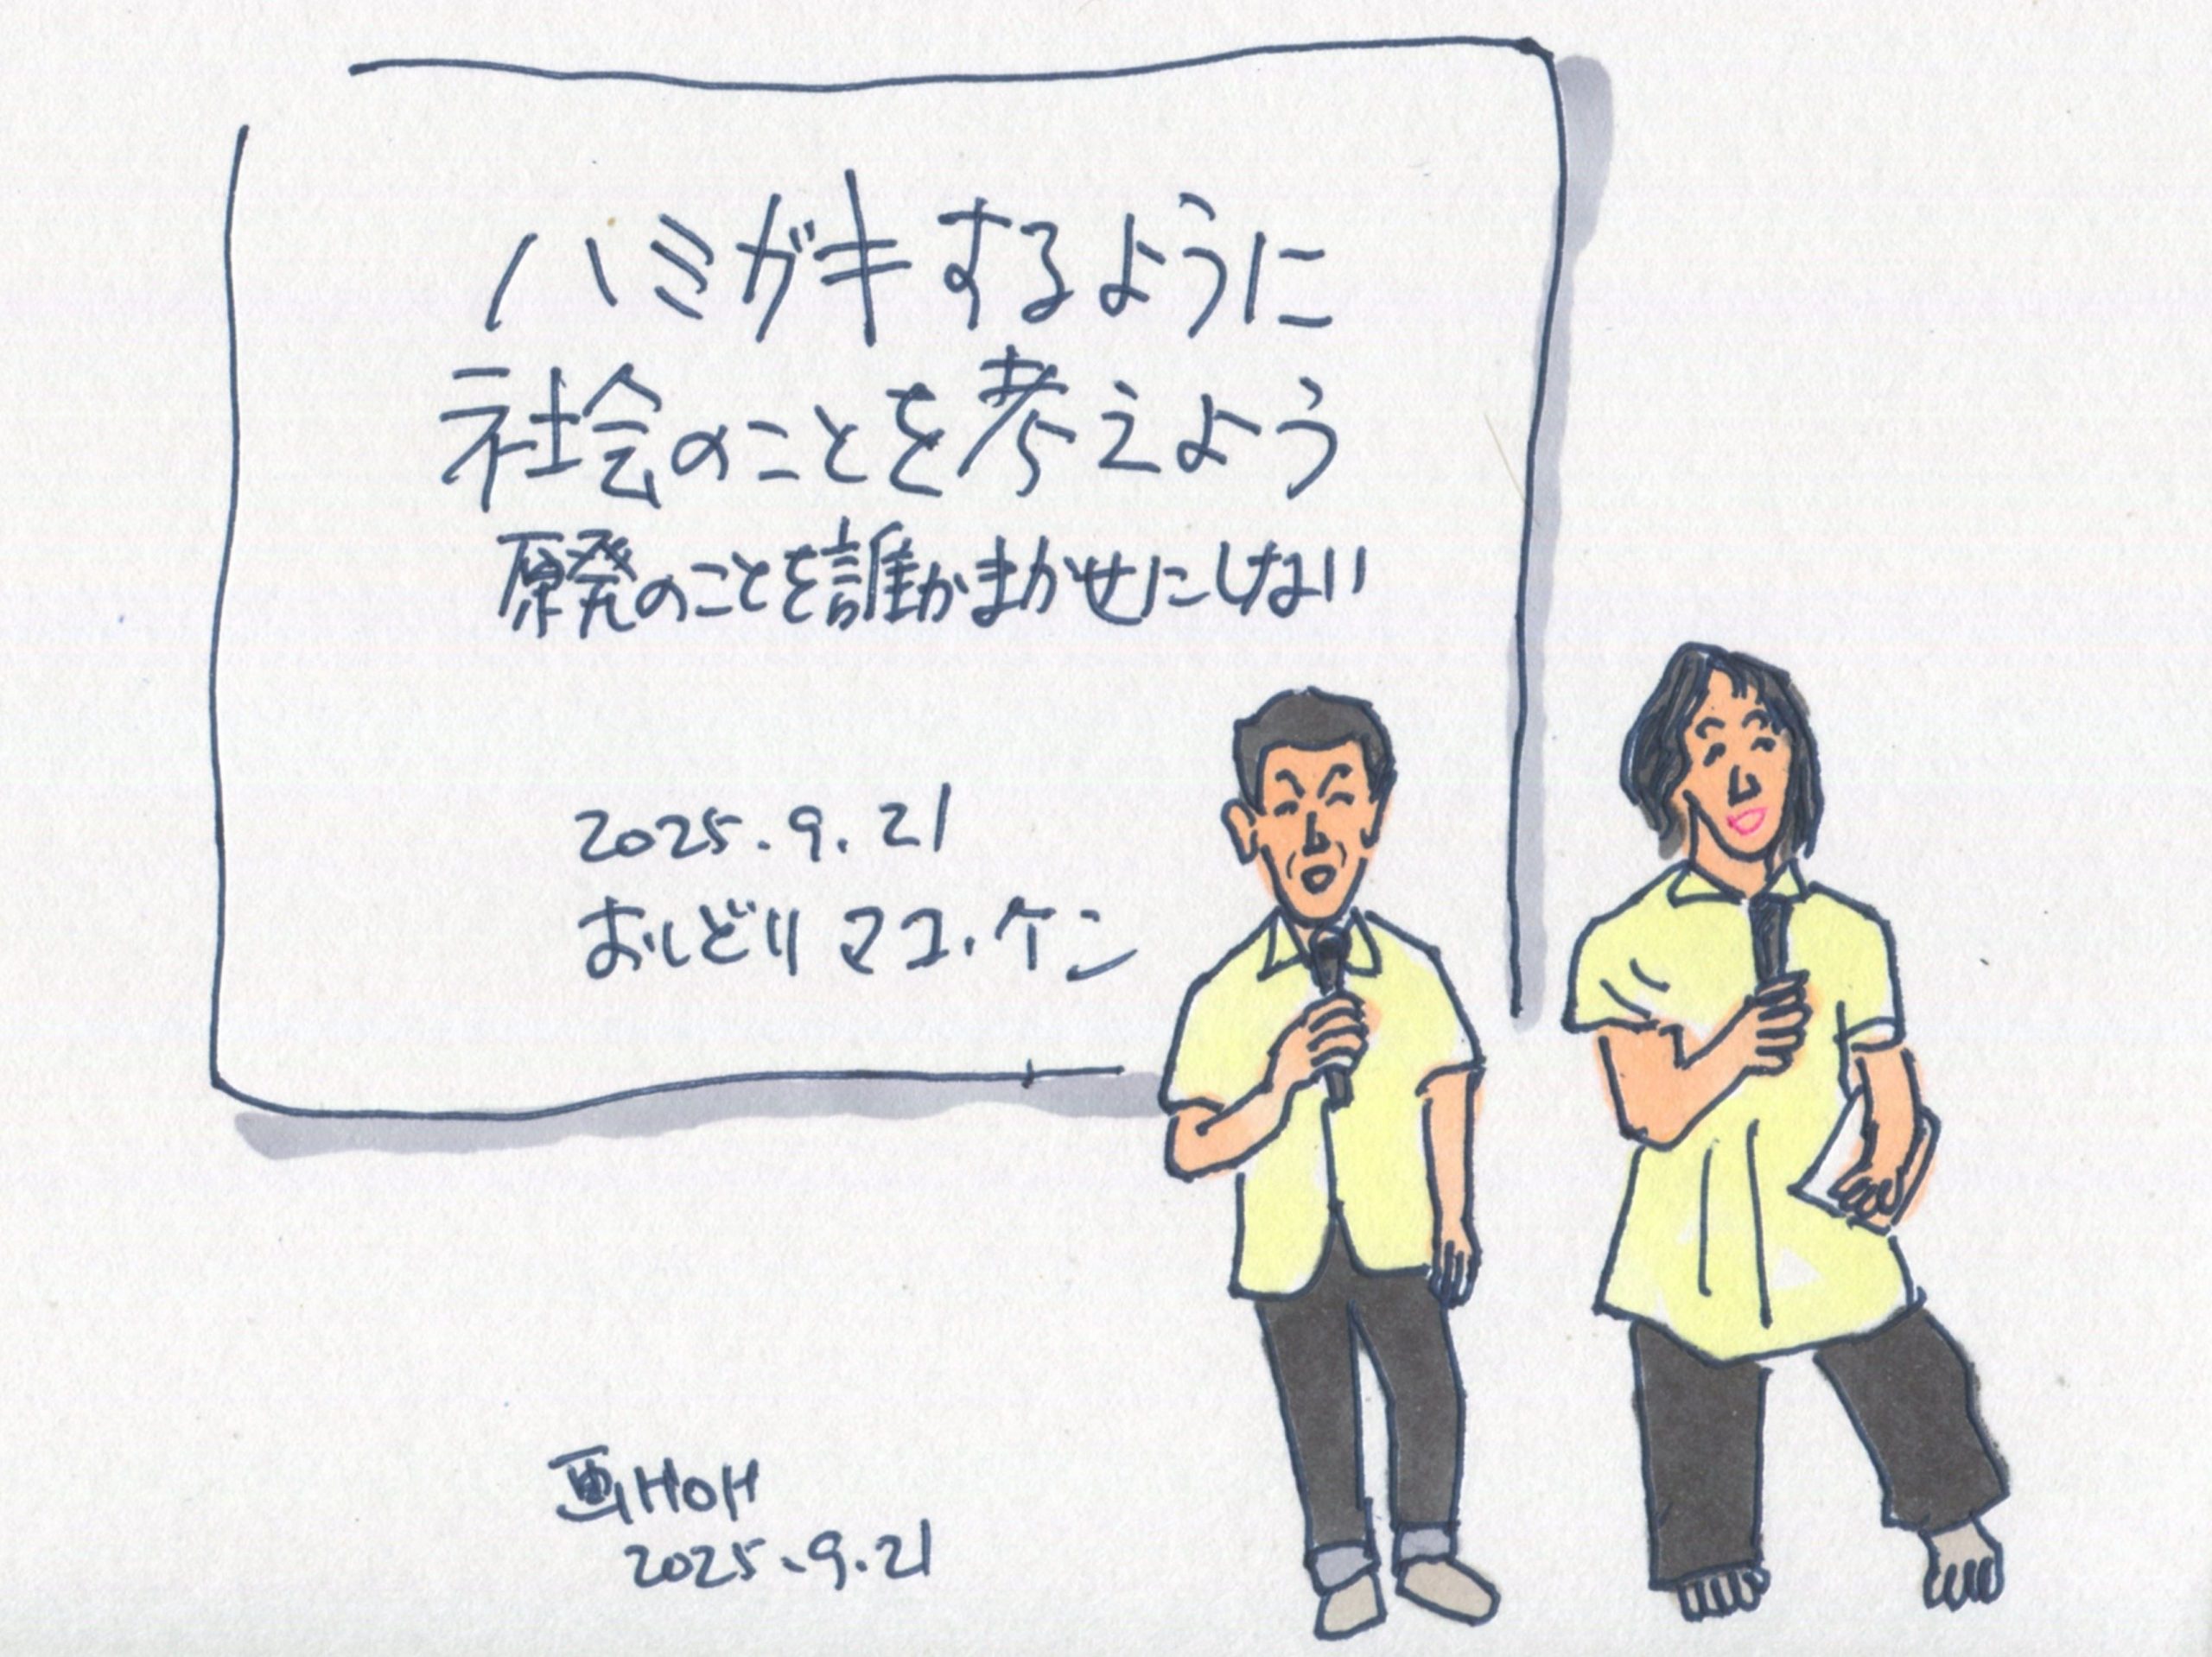 ハミガキするように
社会のことを考えよう
原発のことを誰かまかせにしない
2025.9.21
おしどりマコ・ケン
画HOH
2025.9.21